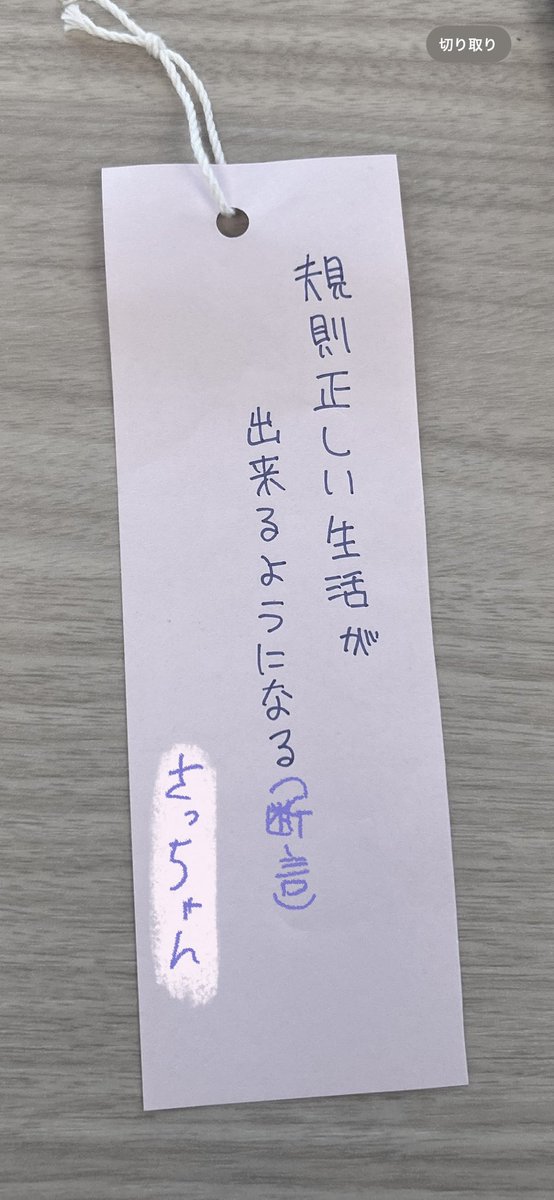 切り取り
規則正しい生活が
出来るようになる(断言)
さっちゃん